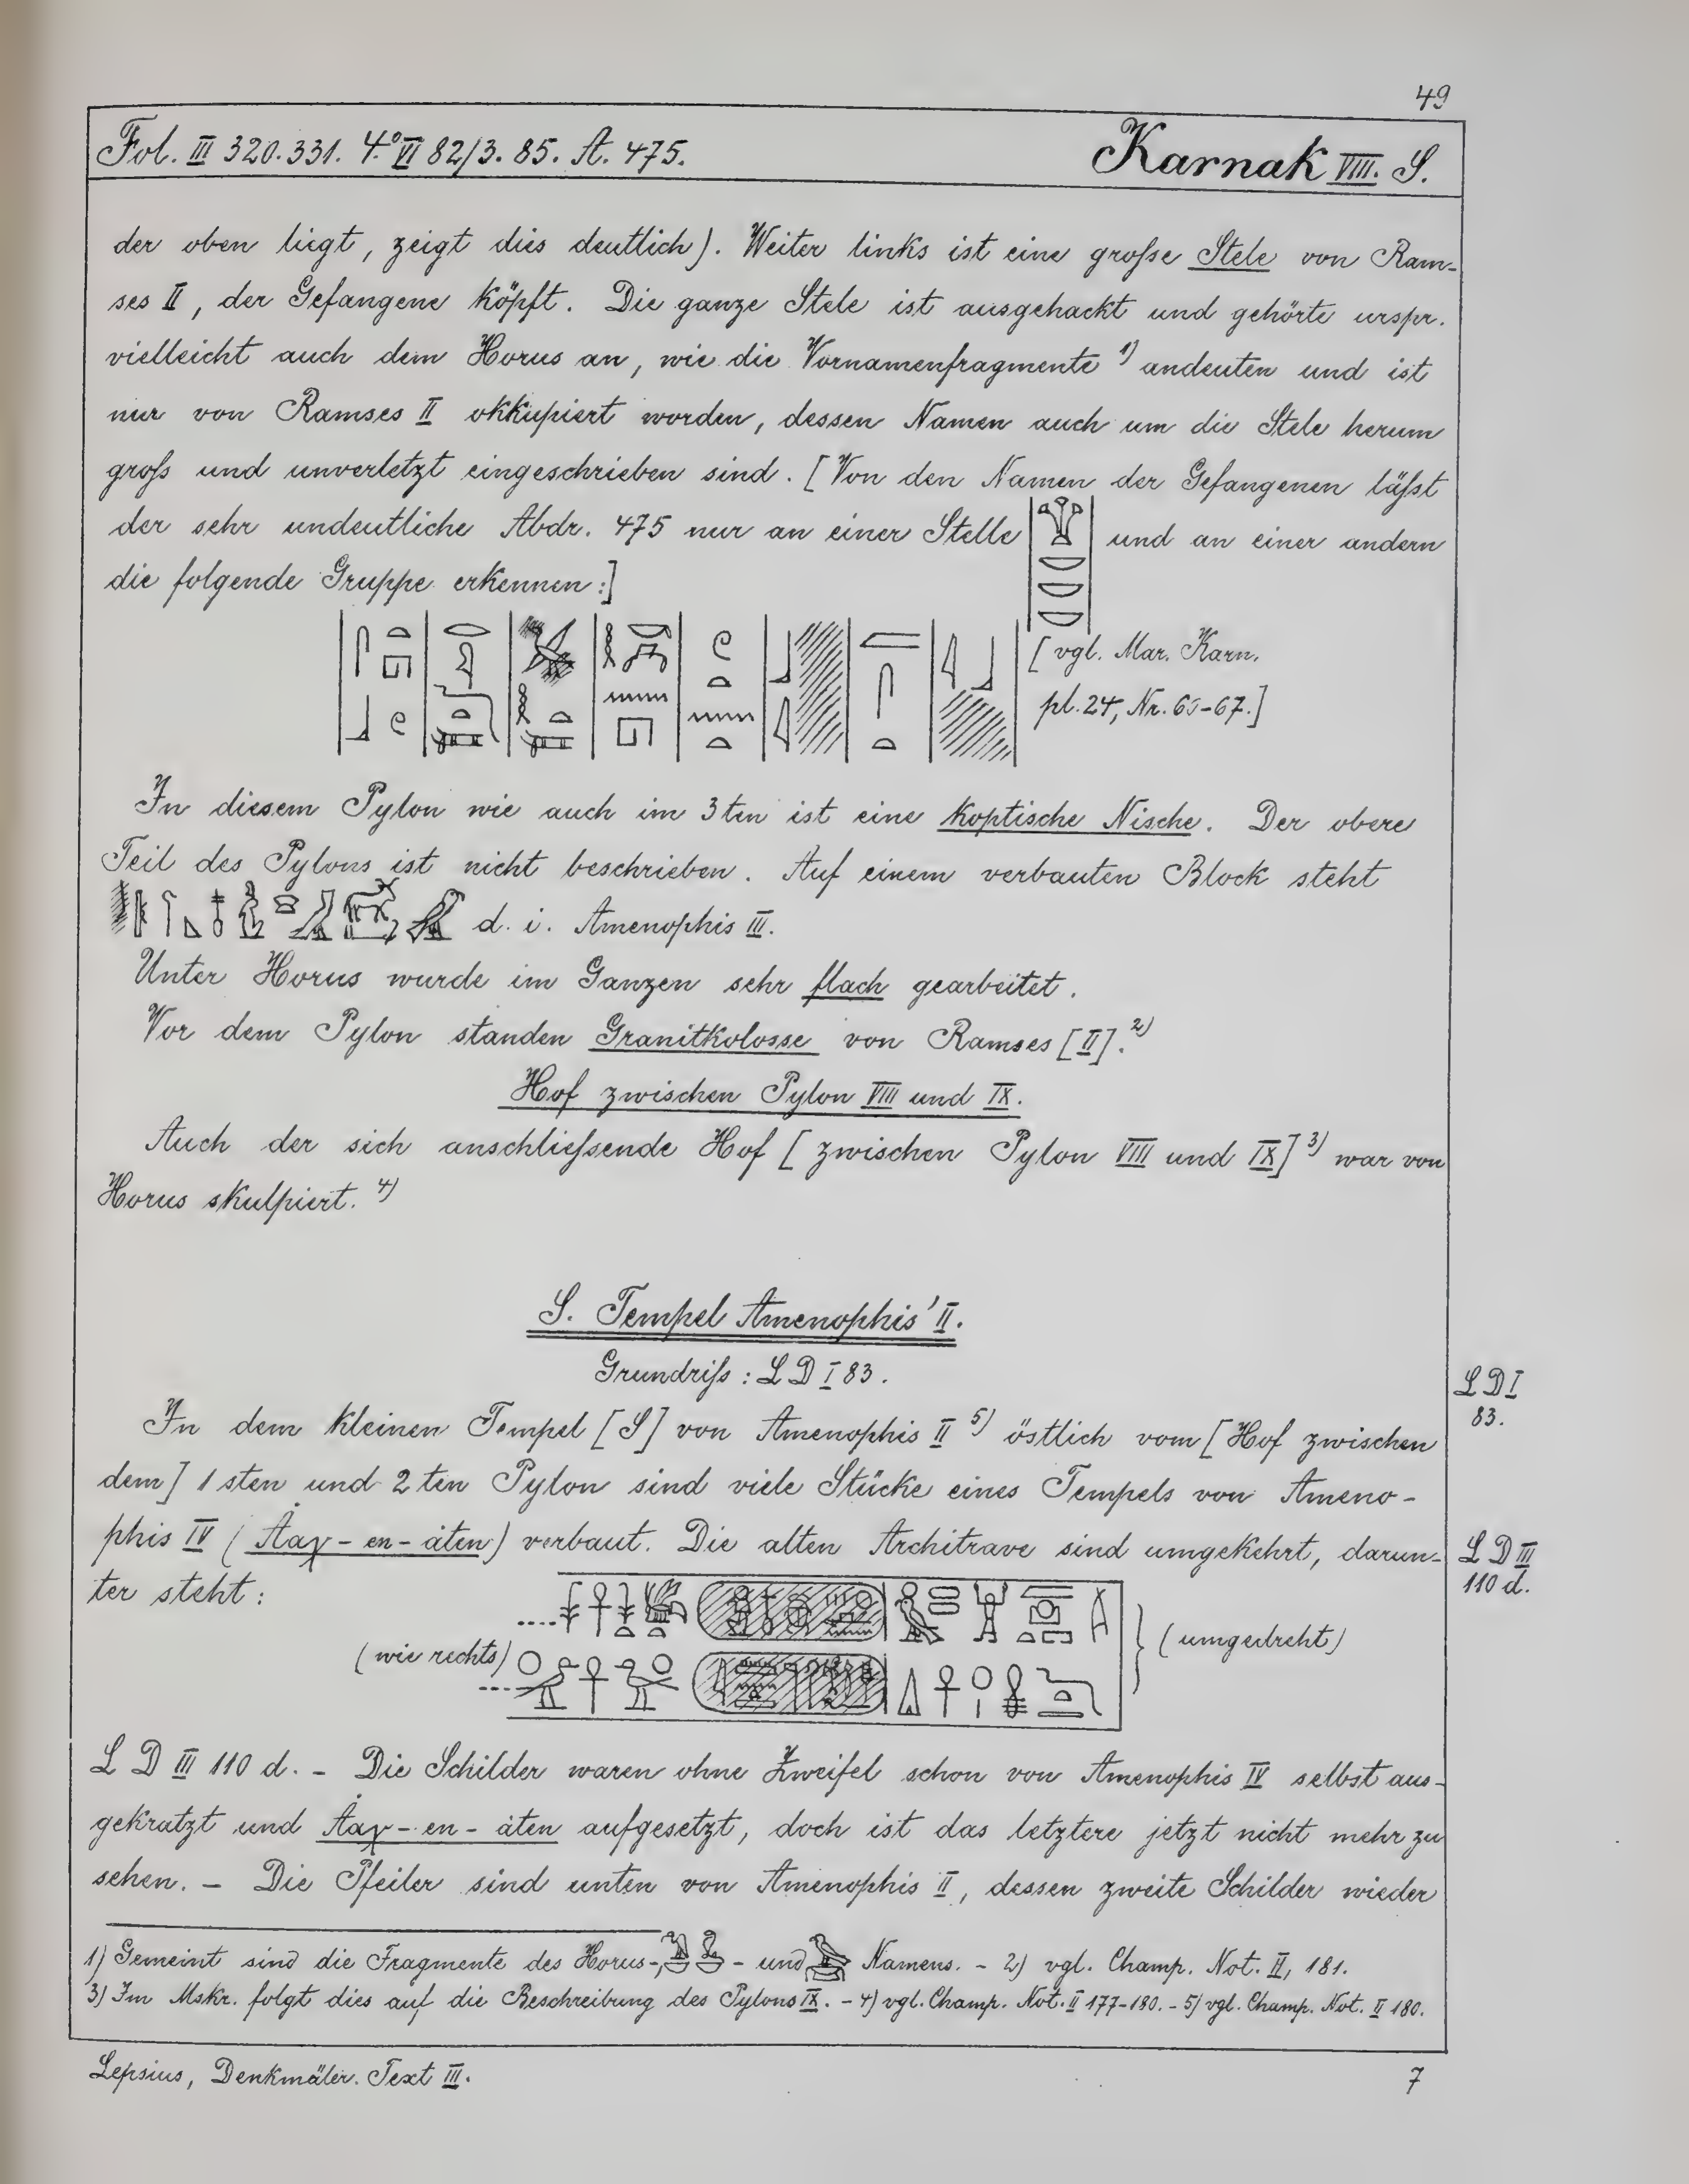 49
Fol. III 320.331. 4º VI 82/3. 85. A. 475.
Karnak VIII. S.
der oben liegt, zeigt dies deutlich). Weiter links ist eine große Stele von Ram-
ses II, der Gefangene köpft. Die ganze Stele ist ausgehackt und gehörte urspr.
vielleicht auch dem Horus an, wie die Vornamenfragmente 1) andeuten und ist
nur von Ramses II okkupiert worden, dessen Namen auch um die Stele herum
groß und unverletzt eingeschrieben sind. [Von den Namen der Gefangenen läßt
der sehr undeutliche Abdr. 475 nur an einer Stelle und an einer andern
die folgende Gruppe erkennen:]
[vgl. Mar. Karn.
pl. 24, Nr. 65-67.]
In diesem Pylon wie auch im 3ten ist eine koptische Nische. Der obere
Teil des Pylons ist nicht beschrieben. Auf einem verbauten Block steht
d. i. Amenophis III.
Unter Horus wurde im Ganzen sehr flach gearbeitet.
Vor dem Pylon standen Granitkolosse von Ramses [II]. 2)
Hof zwischen Pylon VIII und IX.
Auch der sich anschließende Hof [zwischen Pylon VIII und IX] 3) war von
Horus skulpiert. 4)
S. Tempel Amenophis' II.
Grundriß: L D I 83.
L D I
83.
In dem kleinen Tempel [S] von Amenophis II 5) östlich vom [Hof zwischen
dem] 1sten und 2ten Pylon sind viele Stücke eines Tempels von Ameno-
phis IV (Ȧaχ-en-ȧten) verbaut. Die alten Architrave sind umgekehrt, darun-
L D III
110 d.
ter steht:
(wie rechts)
(umgedreht)
L D III 110 d. - Die Schilder waren ohne Zweifel schon von Amenophis IV selbst aus-
gekratzt und Ȧaχ-en-ȧten aufgesetzt, doch ist das letztere jetzt nicht mehr zu
sehen. - Die Pfeiler sind unten von Amenophis II, dessen zweite Schilder wieder
1) Gemeint sind die Fragmente des Horus-, - und Namens. - 2) vgl. Champ. Not. II, 181.
3) Im Mskr. folgt dies auf die Beschreibung des Pylons IX. - 4) vgl. Champ. Not. II 177-180. - 5) vgl. Champ. Not. II 180.
Lepsius, Denkmäler. Text III.
7